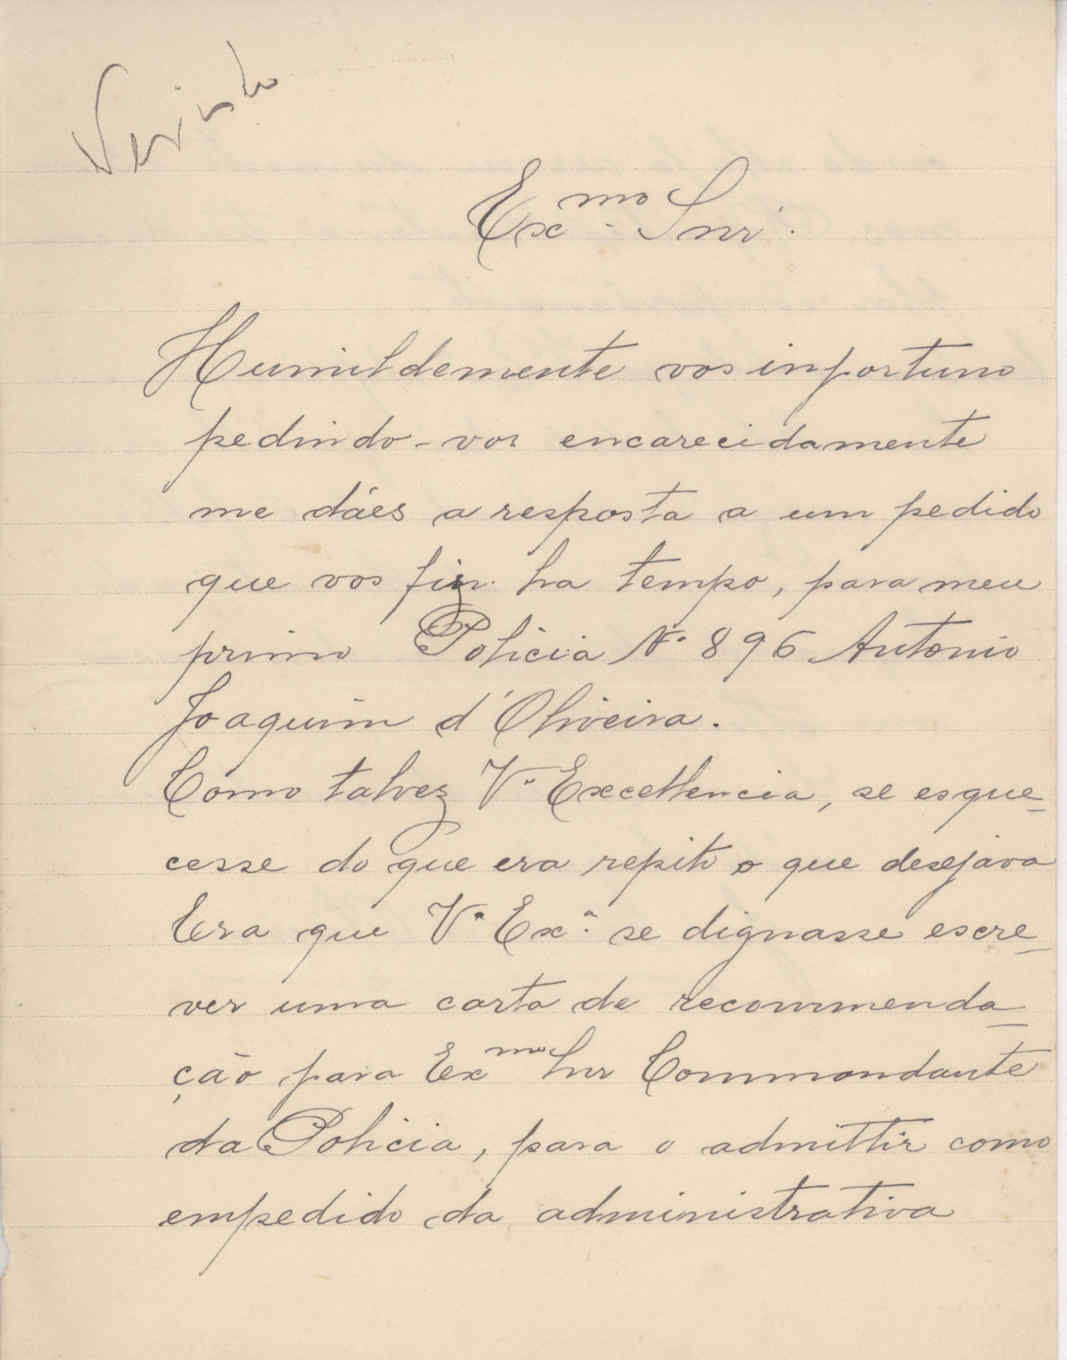 Ex.mo Snr.
Humildemente vos inportuno
pedindo-vos encarecidamente
me dáes a resposta a um pedido
que vos fiz ha tempo, para meu
primo Policia Nº 896 Antonio
Joaquim d'Oliveira.
Como talvez Vª Excellencia, se esque_
cesse do que era repito o que desejava
Era que Vª Exª. se dignasse escre_
ver uma carta de recommenda_
ção para Exmo Snr Commandante
da Policia, para o admittir como
empedido da administrativa